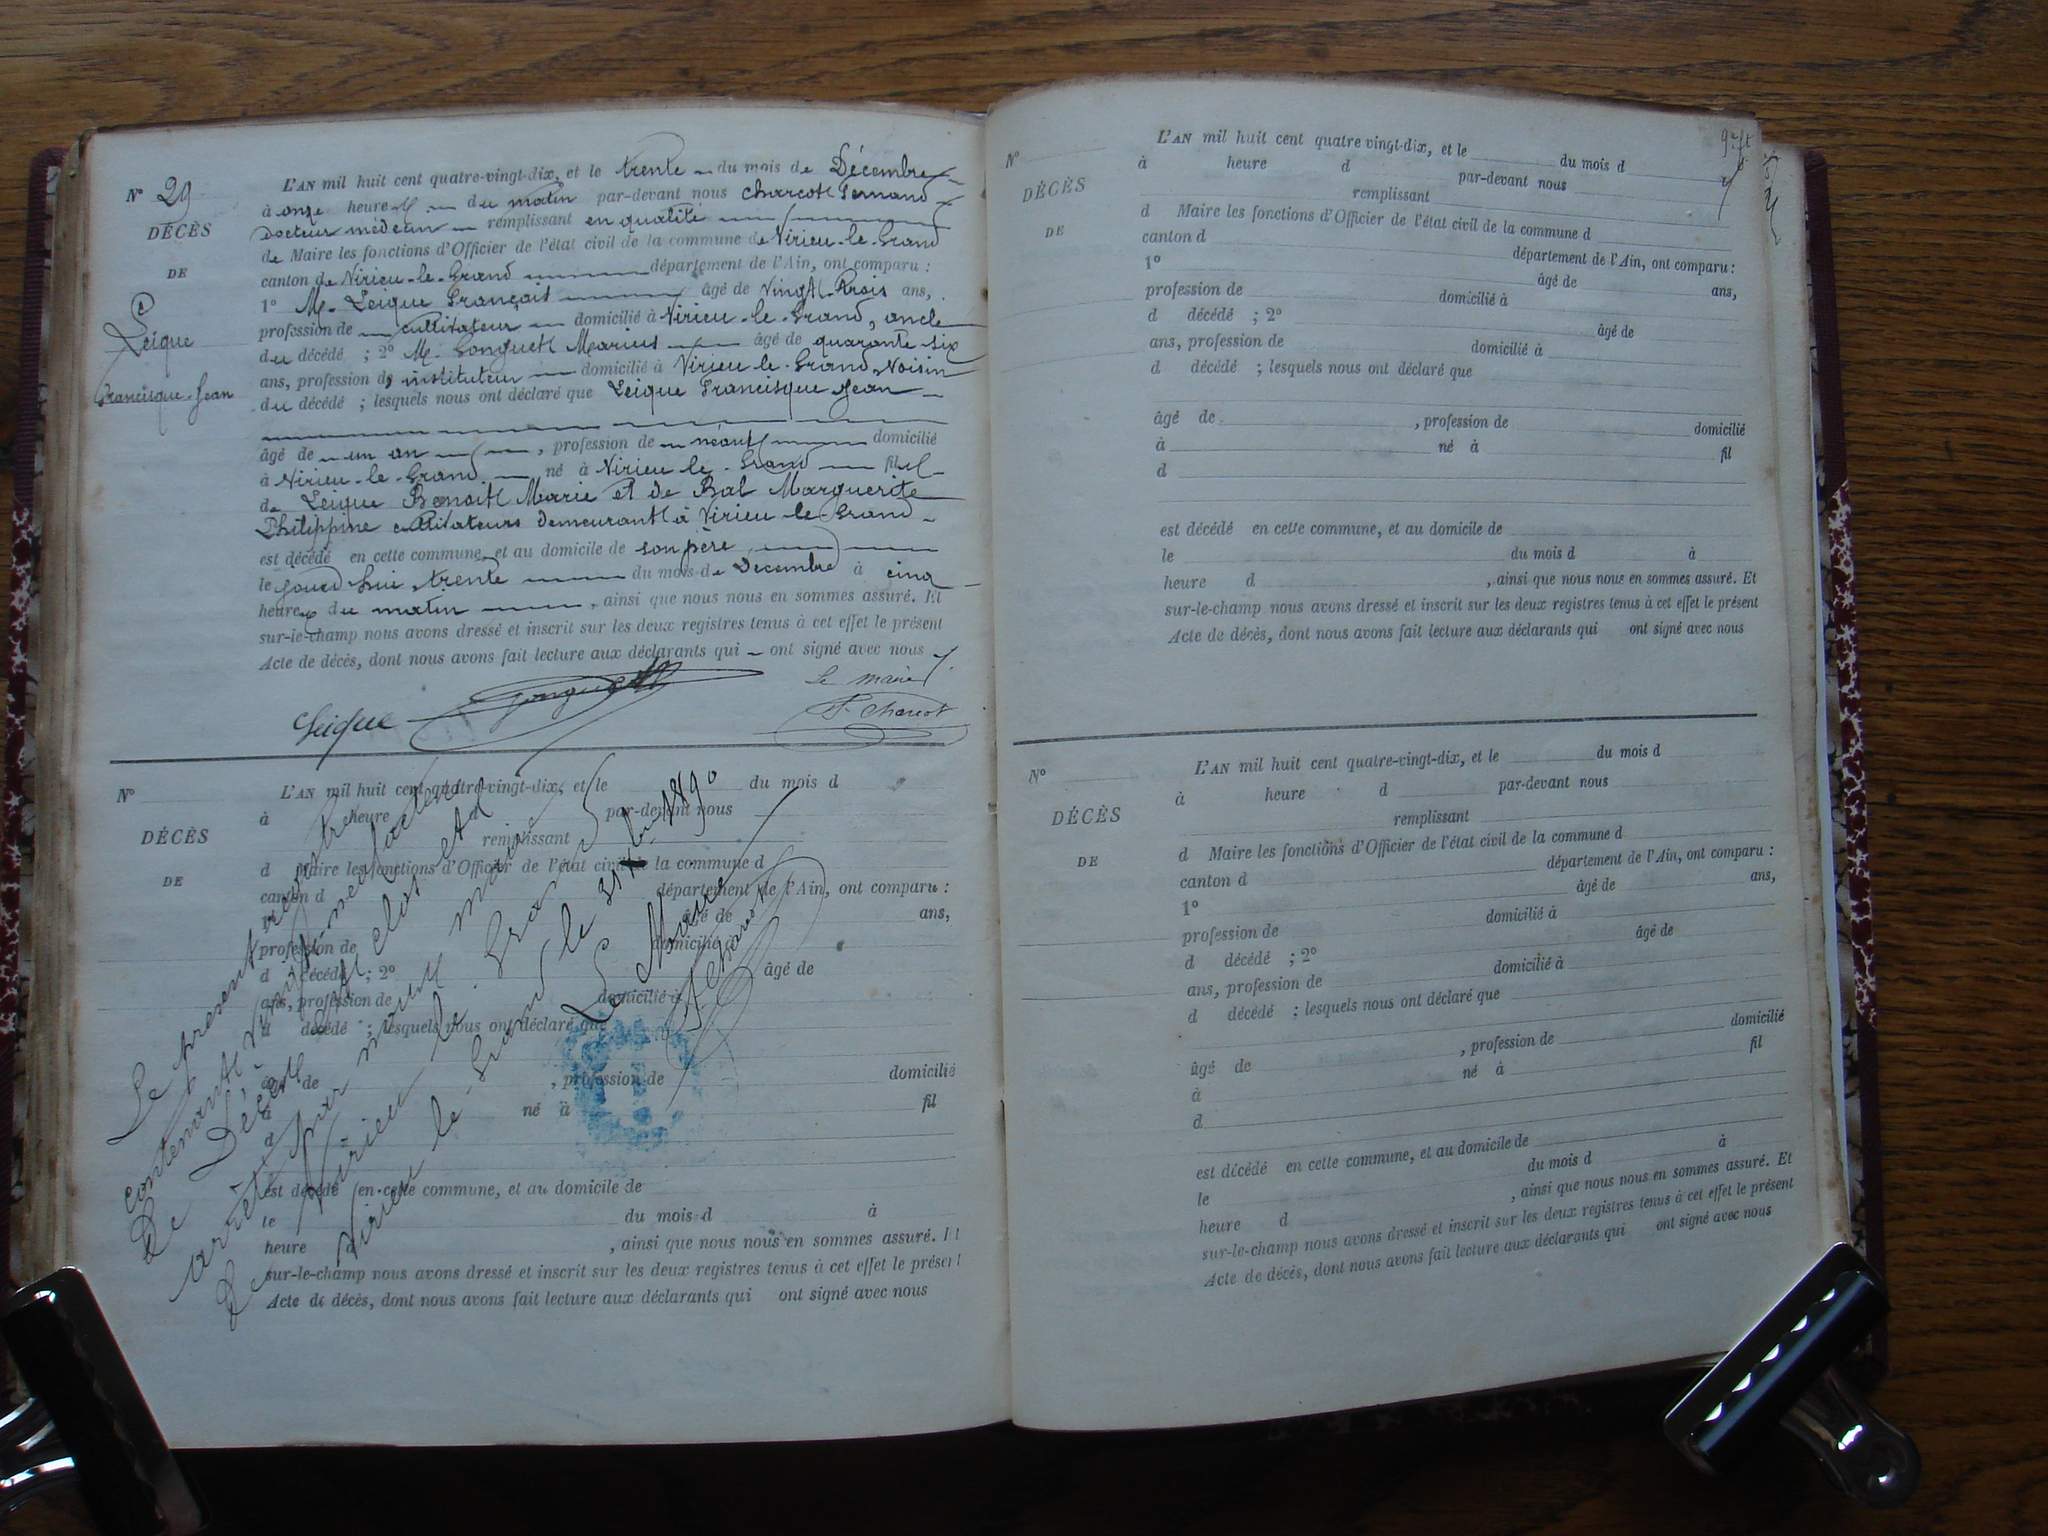 N° 29
DÉCÈS
DE
Leique
Francisque-Jean
L'AN mil huit cent quatre-vingt-dix, et le trente du mois de Décembre
à onze heures du matin par-devant nous Charcot Fernand
Docteur médecin remplissant en qualité
de Maire les fonctions d'Officier de l'état civil de la commune de Virieu-le-Grand
canton de Virieu-le-Grand département de l'Ain, ont comparu :
1° M. Leique Français âgé de Vingt-trois ans,
profession de cultivateur domicilié à Virieu-le-Grand, oncle
du décédé ; 2° M. Gonguet Marius âgé de quarante-six
ans, profession d' instituteur domicilié à Virieu-le-Grand, Voisin
du décédé ; lesquels nous ont déclaré que Leique Francisque Jean
âgé de un an , profession de néant domicilié
à Virieu-le-Grand né à Virieu-le-Grand fils
de Leique Benoit Marie et de Bal Marguerite
Philippine cultivateurs demeurant à Virieu-le-Grand
est décédé en cette commune, et au domicile de son père
le jourd'hui trente du mois de Décembre à cinq
heures du matin , ainsi que nous nous en sommes assuré. Et
sur-le-champ nous avons dressé et inscrit sur les deux registres tenus à cet effet le présent
Acte de décès, dont nous avons fait lecture aux déclarants qui ont signé avec nous
Le maire
Leique Gonguet F. Charcot
N°
DÉCÈS
DE
L'AN mil huit cent quatre-vingt-dix, et le du mois d
à heure par-devant nous
remplissant
d Maire les fonctions d'Officier de l'état civil de la commune d
canton d département de l'Ain, ont comparu :
1° âgé de ans,
profession de domicilié à
d décédé ; 2° âgé de
ans, profession de domicilié à
d décédé ; lesquels nous ont déclaré que
âgé de , profession de domicilié
à né à fil
d
est décédé en cette commune, et au domicile de
le du mois d à
heure d , ainsi que nous nous en sommes assuré. Et
sur-le-champ nous avons dressé et inscrit sur les deux registres tenus à cet effet le présent
Acte de décès, dont nous avons fait lecture aux déclarants qui ont signé avec nous
Le présent registre
contenant vingt-neuf actes
De Décès est clos et
arrêté par nous maire
De Virieu-le-Grand
Virieu-le-Grand le 31 Xbre 1890
Le Maire
F. Charcot
N°
DÉCÈS
DE
L'AN mil huit cent quatre-vingt-dix, et le du mois d
à heure d par-devant nous
remplissant
d Maire les fonctions d'Officier de l'état civil de la commune d
canton d département de l'Ain, ont comparu :
1° âgé de ans,
profession de domicilié à
d décédé ; 2° âgé de
ans, profession de domicilié à
d décédé ; lesquels nous ont déclaré que
âgé de , profession de domicilié
à né à fil
d
est décédé en cette commune, et au domicile de
le du mois d à
heure d , ainsi que nous nous en sommes assuré. Et
sur-le-champ nous avons dressé et inscrit sur les deux registres tenus à cet effet le présent
Acte de décès, dont nous avons fait lecture aux déclarants qui ont signé avec nous
N°
DÉCÈS
DE
L'AN mil huit cent quatre-vingt-dix, et le du mois d
à heure d par-devant nous
remplissant
d Maire les fonctions d'Officier de l'état civil de la commune d
canton d département de l'Ain, ont comparu :
1° âgé de ans,
profession de domicilié à
d décédé ; 2° âgé de
ans, profession de domicilié à
d décédé ; lesquels nous ont déclaré que
âgé de , profession de domicilié
à né à fil
d
est décédé en cette commune, et au domicile de
le du mois d à
heure d , ainsi que nous nous en sommes assuré. Et
sur-le-champ nous avons dressé et inscrit sur les deux registres tenus à cet effet le présent
Acte de décès, dont nous avons fait lecture aux déclarants qui ont signé avec nous